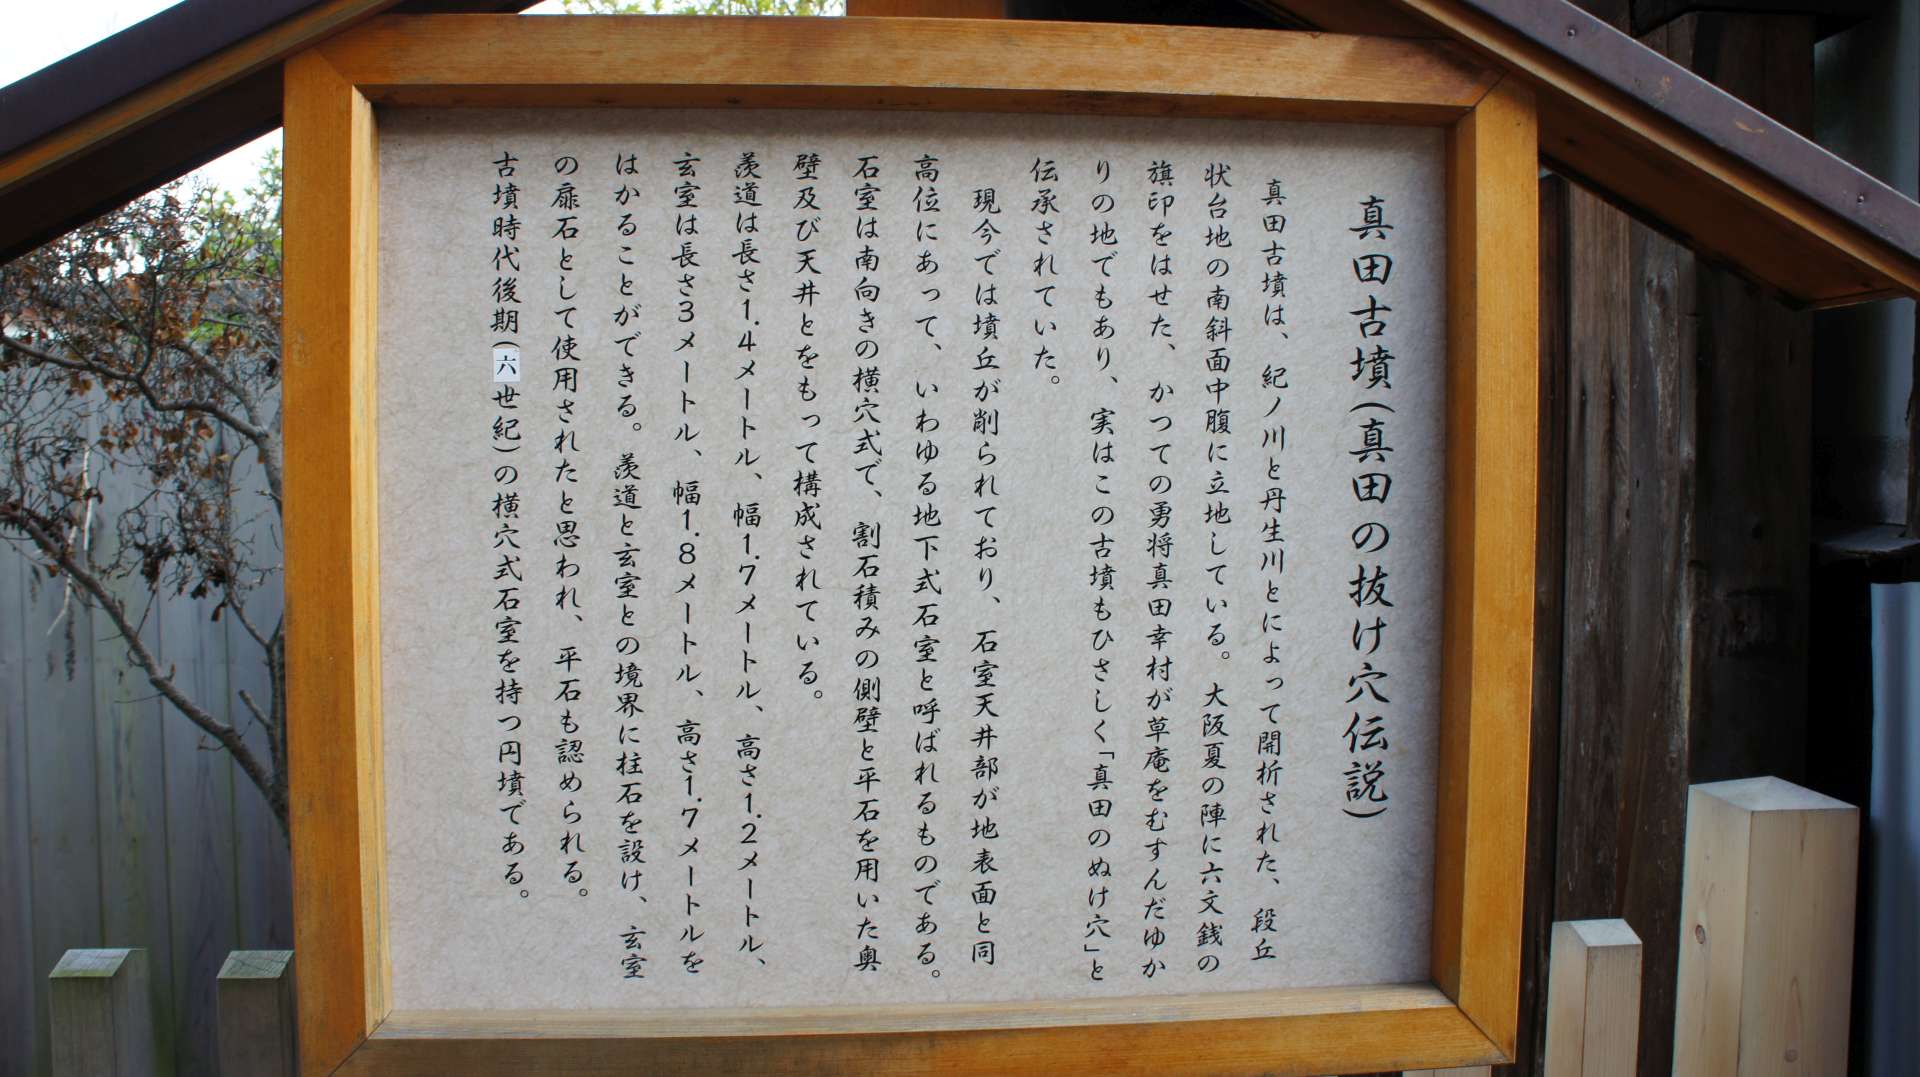 真田古墳(真田の抜け穴伝説)
真田古墳は、紀ノ川と丹生川とによって開折された、段丘
状台地の南斜面中腹に立地している。大阪夏の陣に六文銭の
旗印をはせた、かつての勇将真田幸村が草庵をむすんだゆか
りの地でもあり、実はこの古墳もひさしく「真田のぬけ穴」と
伝承されていた。
現今では墳丘が削られており、石室天井部が地表面と同
高位にあって、いわゆる地下式石室と呼ばれるものである。
石室は南向きの横穴式で、割石積みの側壁と平石を用いた奥
壁及び天井とをもって構成されている。
羨道は長さ1.4メートル、幅1.7メートル、高さ1.2メートル、
玄室は長さ3メートル、幅1.8メートル、高さ1.7メートルを
はかることができる。羨道と玄室との境界に柱石を設け、玄室
の扉石として使用されたと思われ、平石も認められる。
古墳時代後期(六世紀)の横穴式石室を持つ円墳である。